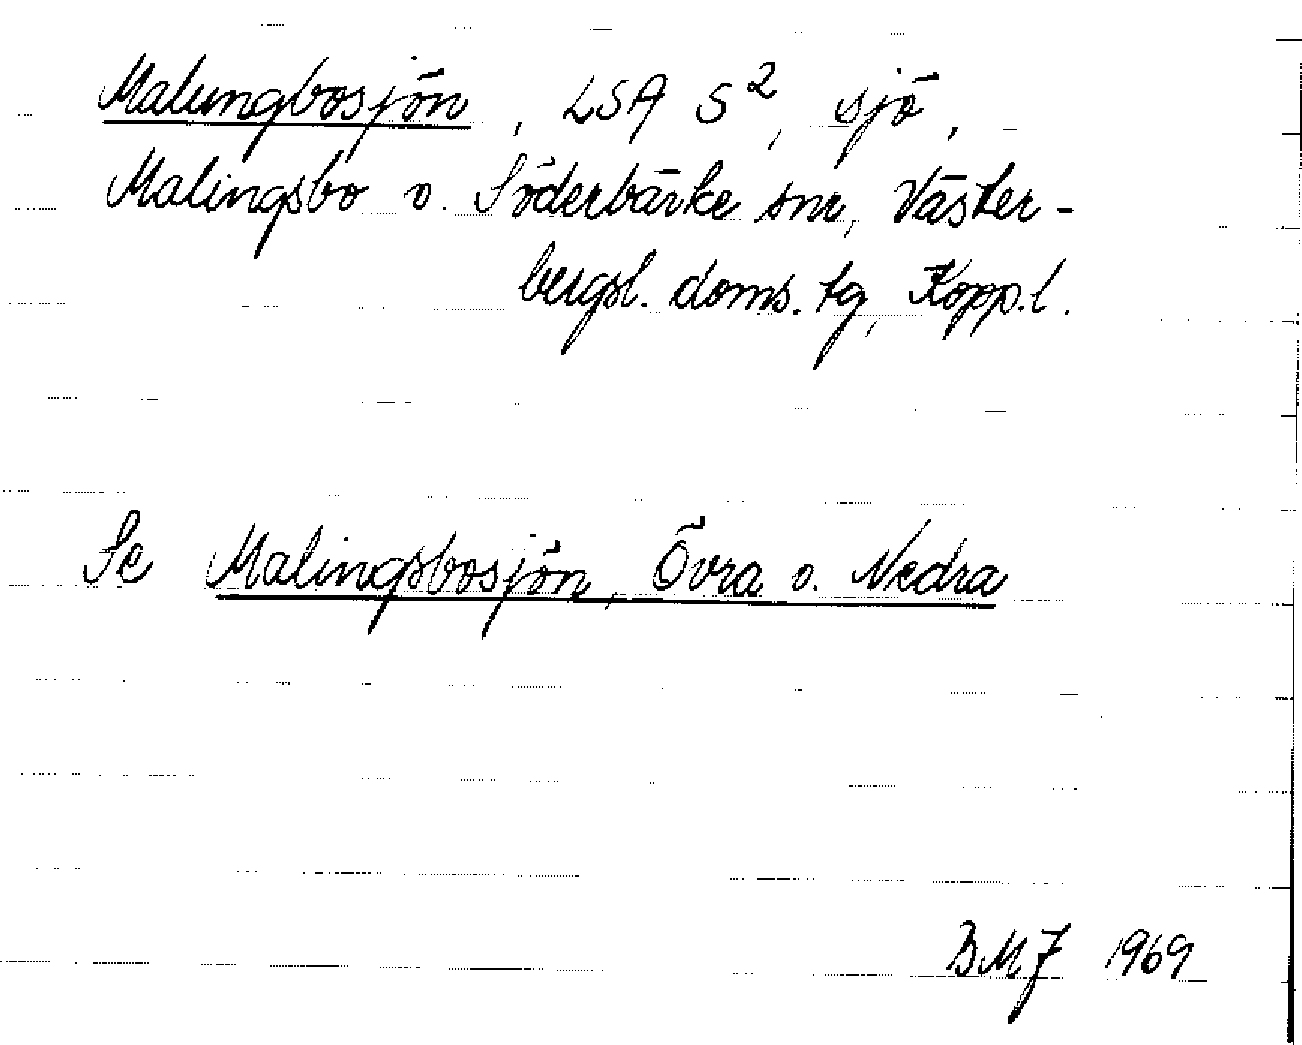 Malungbosjön, LSA S², sjö,
Malingsbo o. Söderbärke snr, Väster-
bergsl. doms. tg, Kopp.l.
Se Malingsbosjön, Övra o. Nedra
BMJ 1969